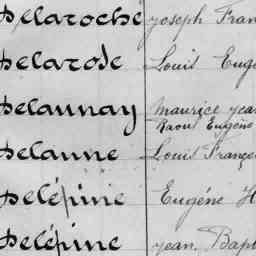 Delaroche Joseph Fran
Delarode Louis Eugè
Delaunay Maurice Jean
Raoul Eugène
Delaunne Louis Françoi
Delépine Eugène H
Delépine Jean Bapt